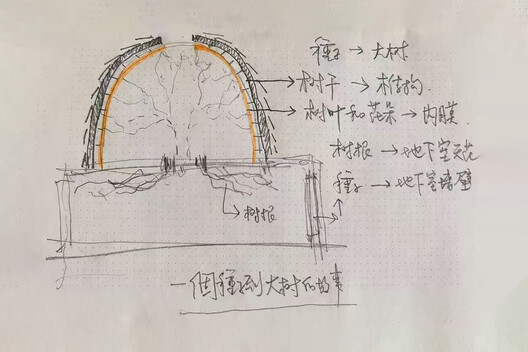 種子→大树
树干→木结构.
树叶和花朵→内膜.
树根→地下室天花
種子→地下室墙壁
→树根
一個種子到大树的故事